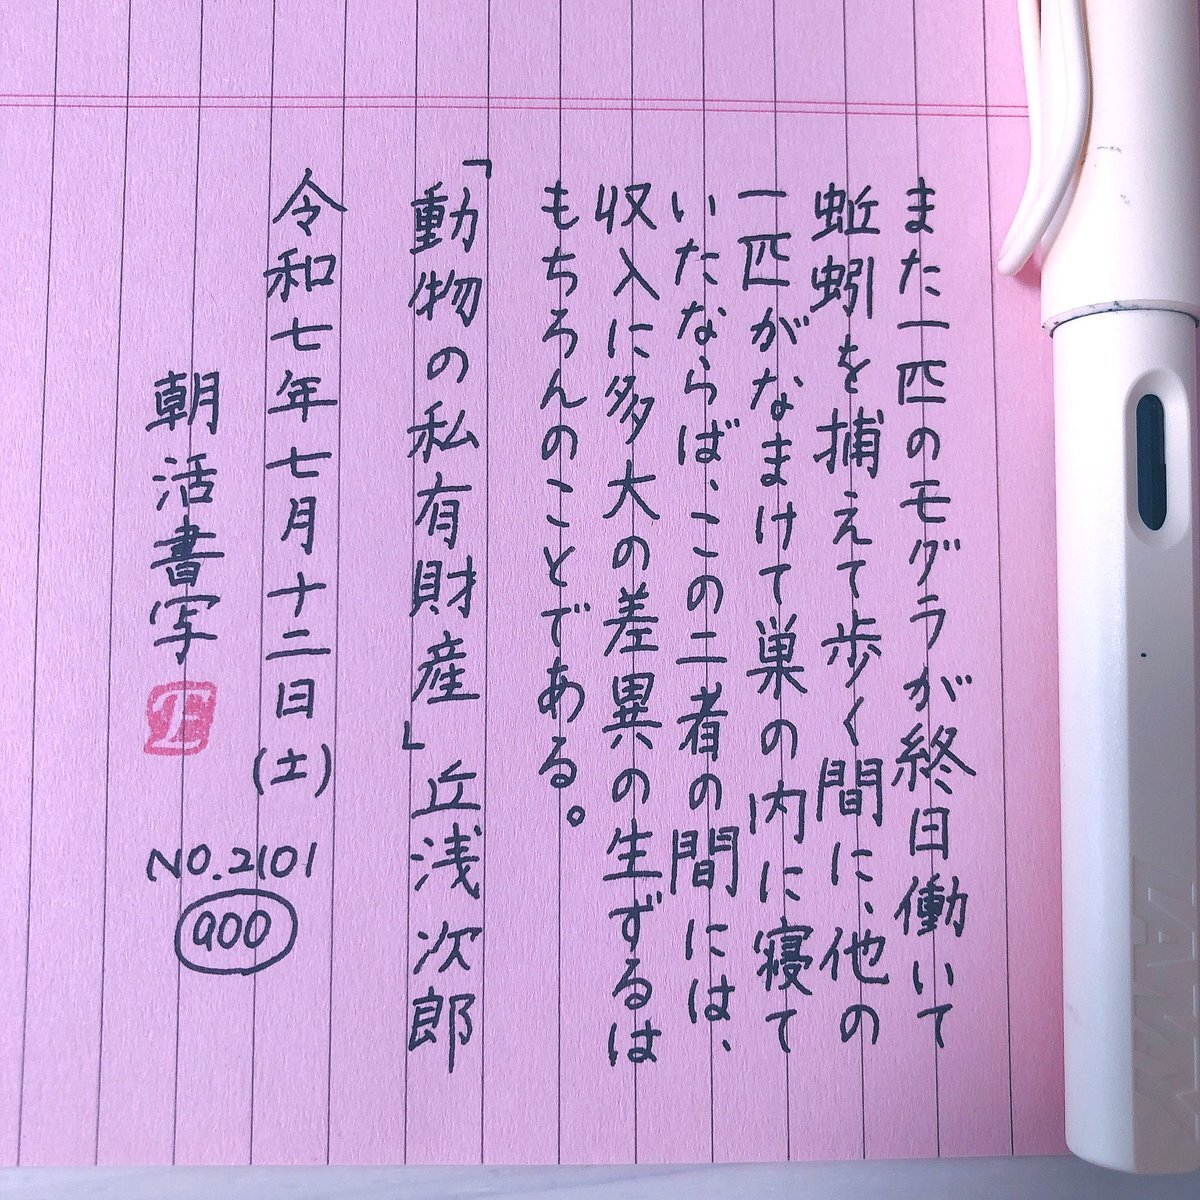 また一匹のモグラが終日働いて
蚯蚓を捕えて歩く間に、他の
一匹がなまけて巣の内に寝て
いたならば、この二者の間には、
収入に多大の差異の生ずるは
もちろんのことである。
「動物の私有財産」丘浅次郎
令和七年七月十二日(土)
朝活書写
NO.2101
900
LAMY